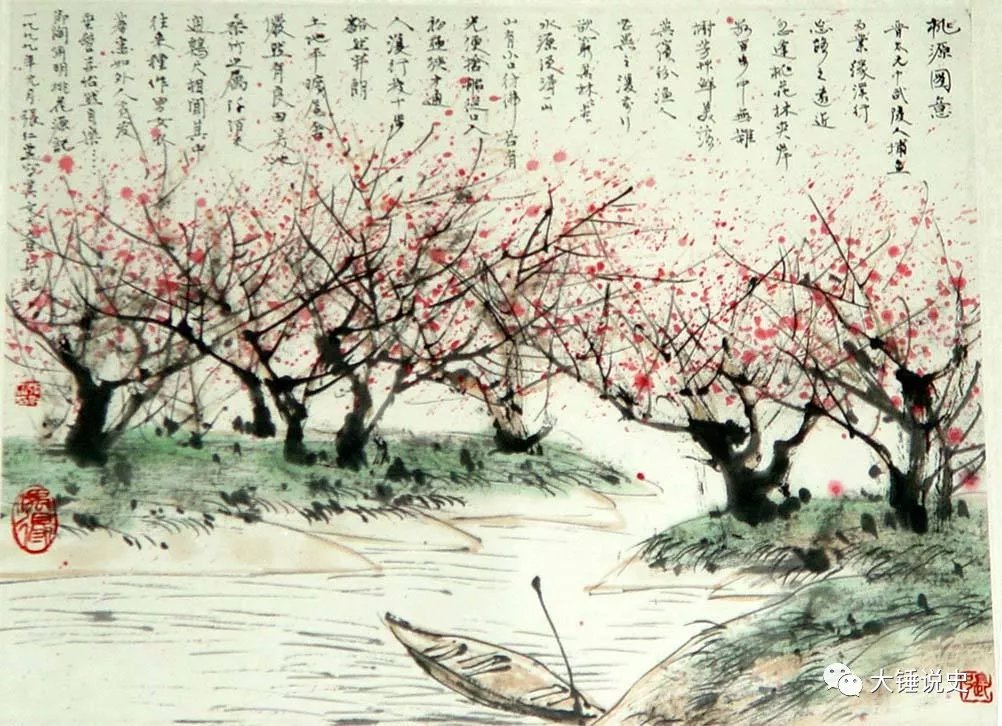 桃源图意
晋太元中武陵人捕鱼
为業缘溪行
忘路之遠近
忽逢桃花林夹岸
数百步中無雜
樹芳草鲜美落
英缤纷渔人
甚異之復前行
欲窮其林林尽
水源便得一山
山有小口仿佛若有
光便捨船從口入
初極狭才通
人復行数十步
豁然开朗
土地平曠屋舍
儼然有良田美池
桑竹之属阡陌交
通鷄犬相闻其中
往来種作男女衣
著悉如外人黄发
垂髫并怡然自樂……
即陶渊明桃花源記
一九九九年六月張仁芝
大锤说史